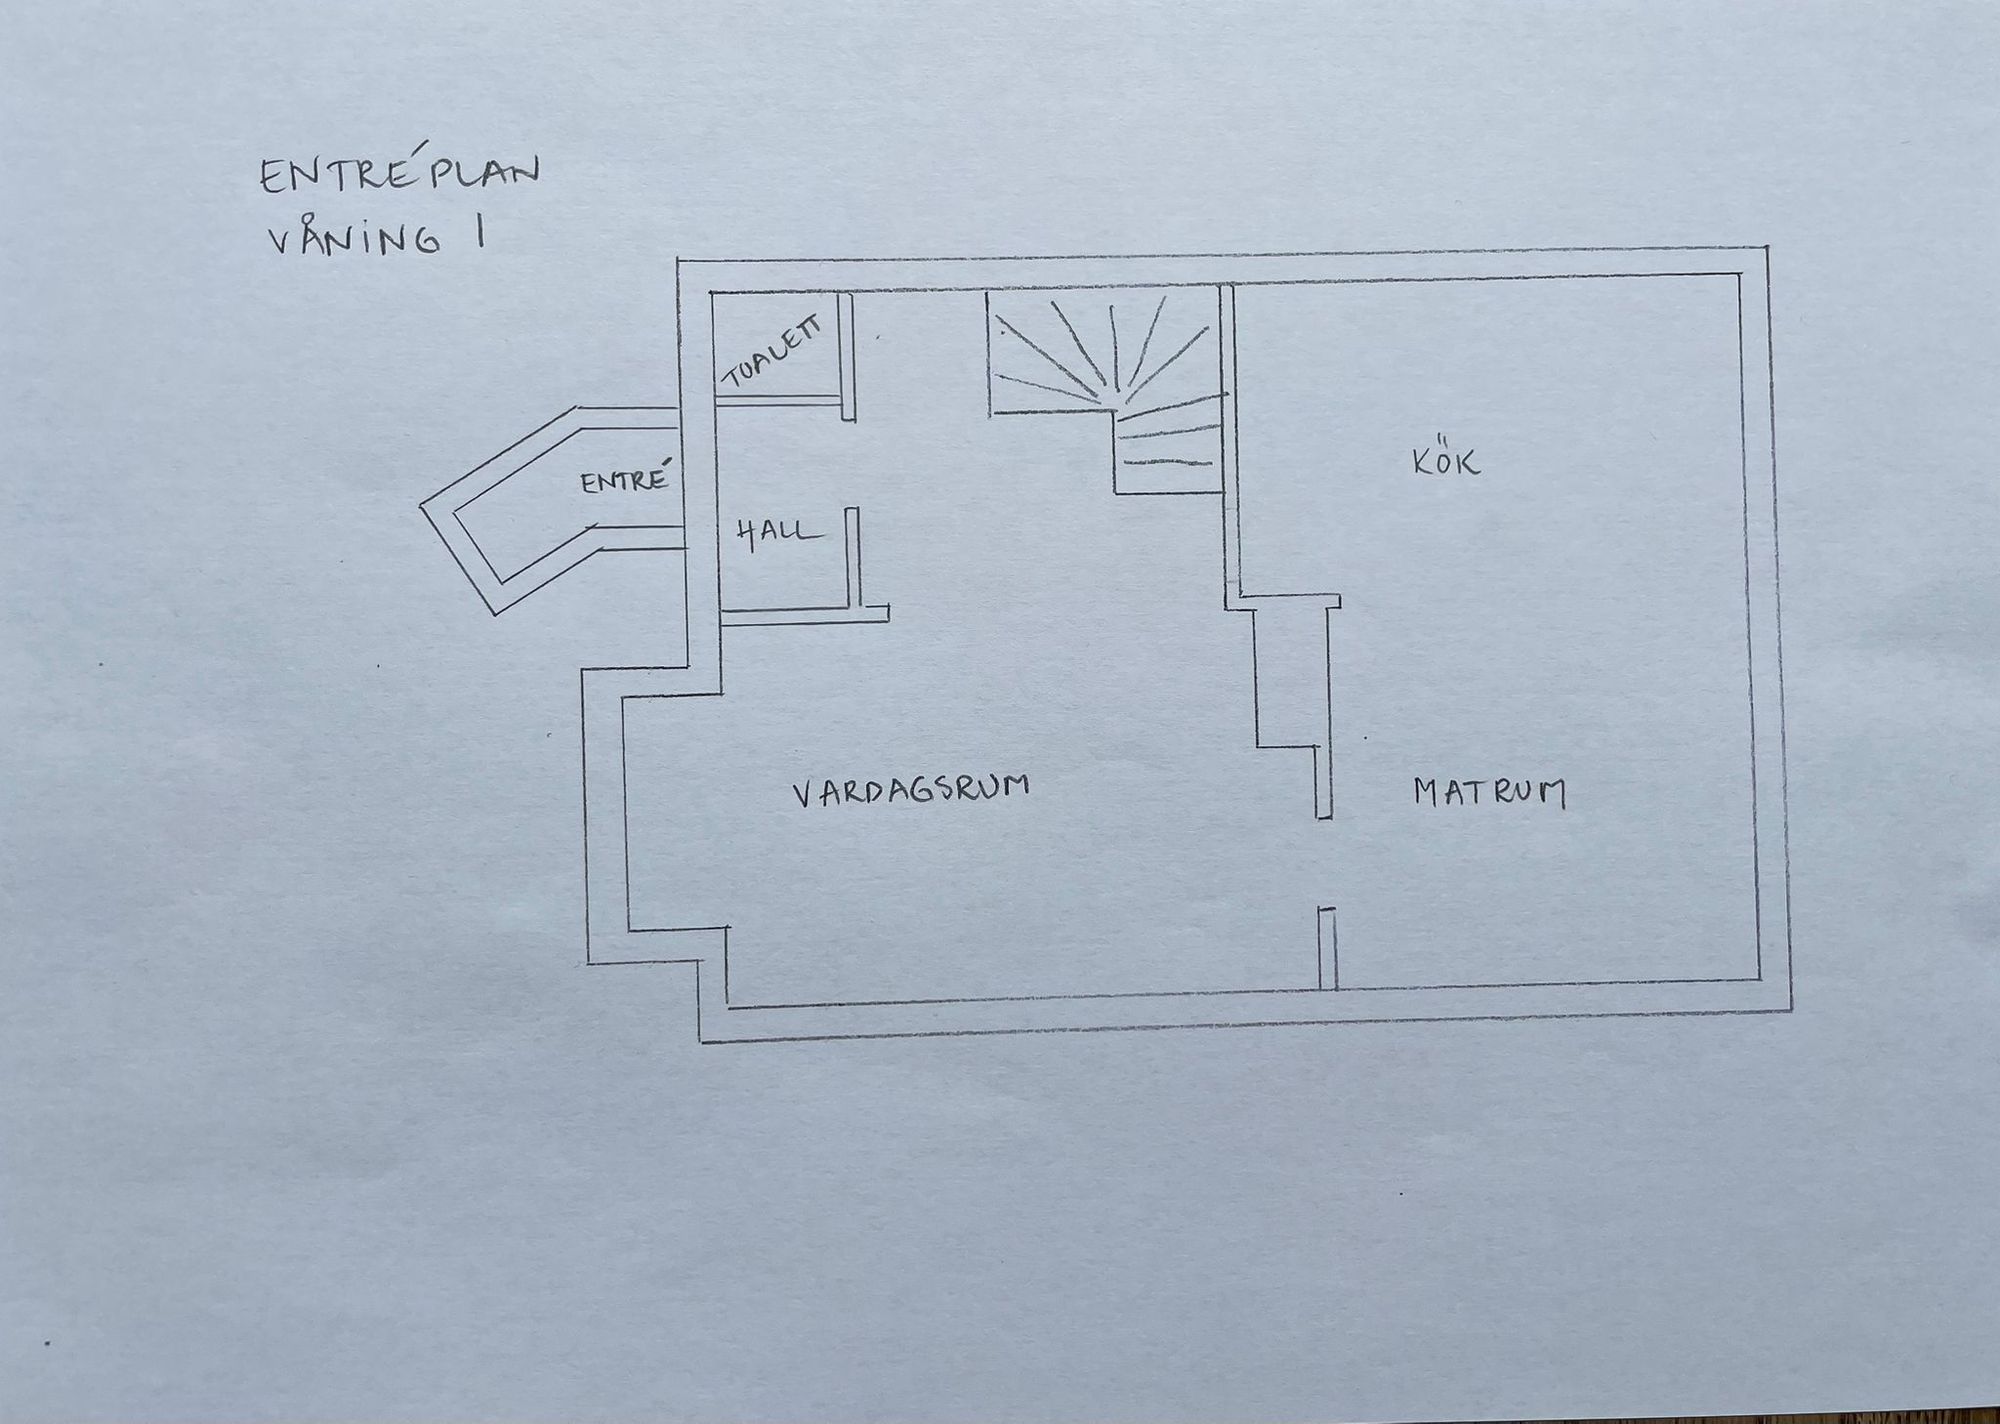 ENTRÉPLAN
VÅNING 1
TOALETT
ENTRÉ
HALL
KÖK
VARDAGSRUM
MATRUM